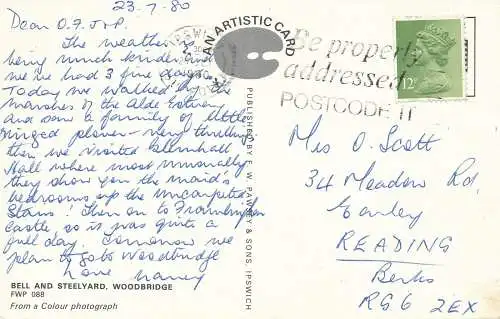 23-7-80
Dear O.F. J & P.
The weather is
being much kinder and
we've had 3 fine days.
Today we walked by the
marshes of the Alde Estuary
and saw a family of little
ringed plover - very thrilling
then we visited Glemham
Hall where most unusually
they show you the maid's
bedrooms up the uncarpeted
stairs! Then on to Framlingham
castle, so it was quite a
full day. Tomorrow we
plan to Woodbridge
Love Nancy
BELL AND STEELYARD, WOODBRIDGE
FWP 088
From a Colour photograph
AN ARTISTIC CARD
PUBLISHED BY F. W. PAWSEY & SONS, IPSWICH
IPSWICH
Be properly
addressed
POSTCODE IT
12P
Mrs O. Scott
34 Meadow Rd.
Earley
READING
Berks
RG6 2EX